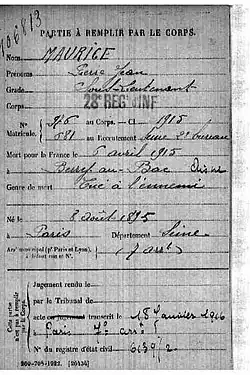 106813
PARTIE À REMPLIR PAR LE CORPS.
Nom MAURICE
Prénoms Pierre Jean
Grade Sous-Lieutenant
Corps 28e REG INF
N° 946 au Corps. — Cl 1915
Matricule. 581 au Recrutement Seine 2e bureau
Mort pour la France le 5 avril 1915
à Berry-au-Bac Aisne
Genre de mort Tué à l'ennemi
Né le 8 août 1895
à Paris Département Seine
Arr. municipal (pr Paris et Lyon), à défaut rue et N°. 7 arrt
Cette partie n'est pas à remplir par le Corps.
Jugement rendu le
par le Tribunal de
acte ou jugement transcrit le 18 Janvier 1916
à Paris 7e arrt
N° du registre d'état civil 639/2